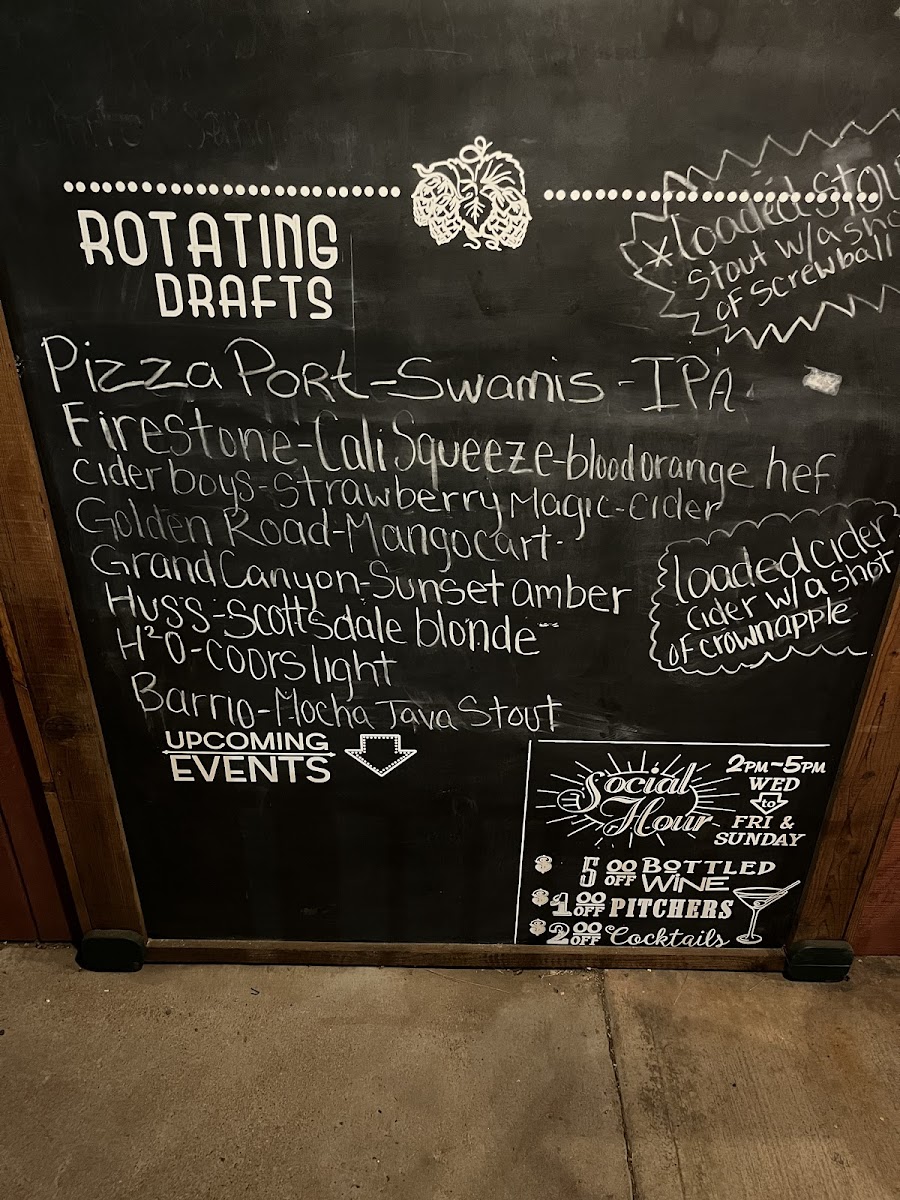 ROTATING
DRAFTS
*loaded Stou
Stout w/a sho
of screwball
Pizza Port-Swamis-IPA
Firestone-Cali Squeeze-blood orange hef
Ciderboys-Strawberry Magic-Cider
Golden Road-Mangocart-
Grand Canyon-Sunset amber
Huss-Scottsdale blonde
H²O-Coors light
Barrio-Mocha Java Stout
loaded cider
cider w/a shot
of crown apple
UPCOMING
EVENTS
Social
Hour
2PM~5PM
WED
to
FRI &
SUNDAY
$5 00 OFF BOTTLED WINE
$1 00 OFF PITCHERS
$2 00 OFF Cocktails